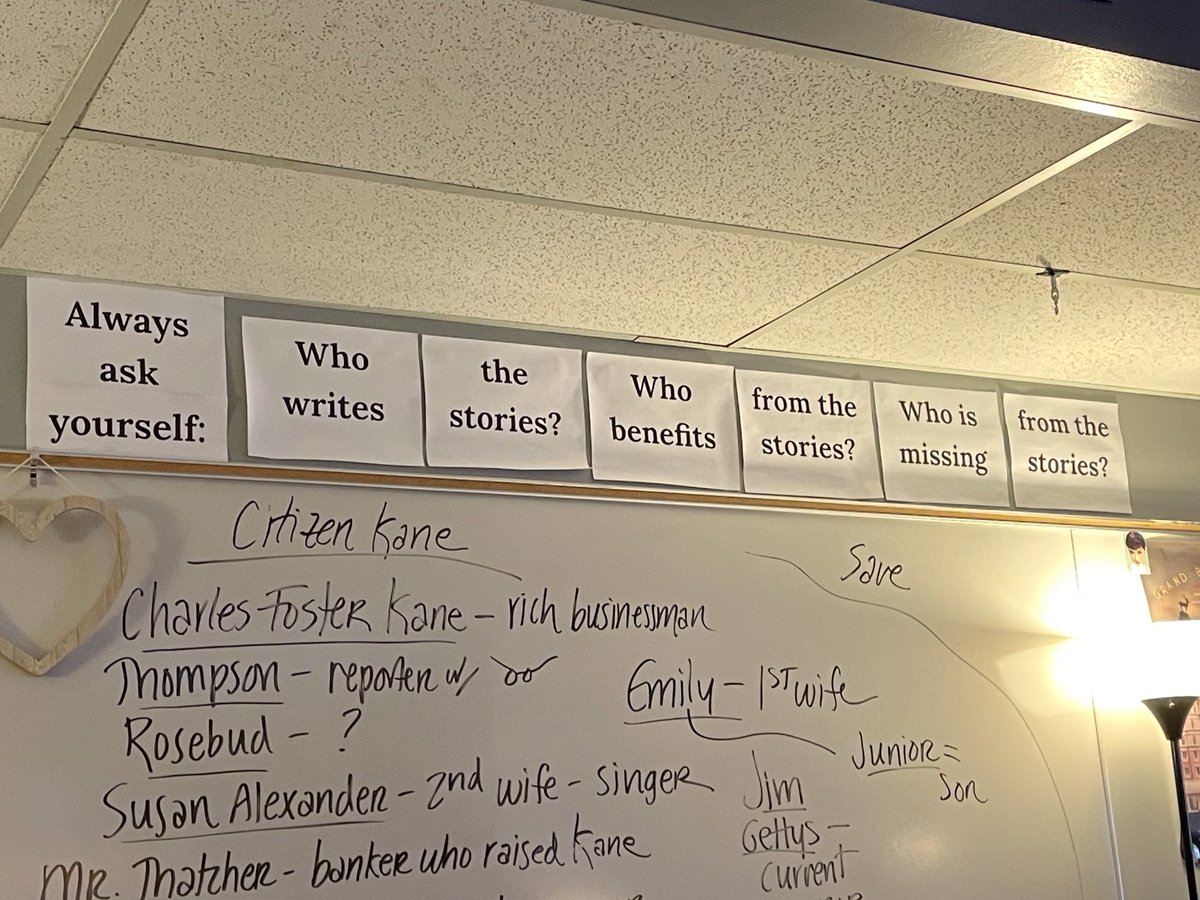 Always
ask
yourself:
Who
writes
the
stories?
Who
benefits
from the
stories?
Who is
missing
from the
stories?
Citizen Kane
Save
Charles Foster Kane – rich businessman
Thompson – reporter w/
Emily – 1ST wife
Rosebud – ?
Junior =
Son
Susan Alexander – 2nd wife – singer
Jim
Gettys –
current
Mr. Thatcher – banker who raised Kane
GRAND B